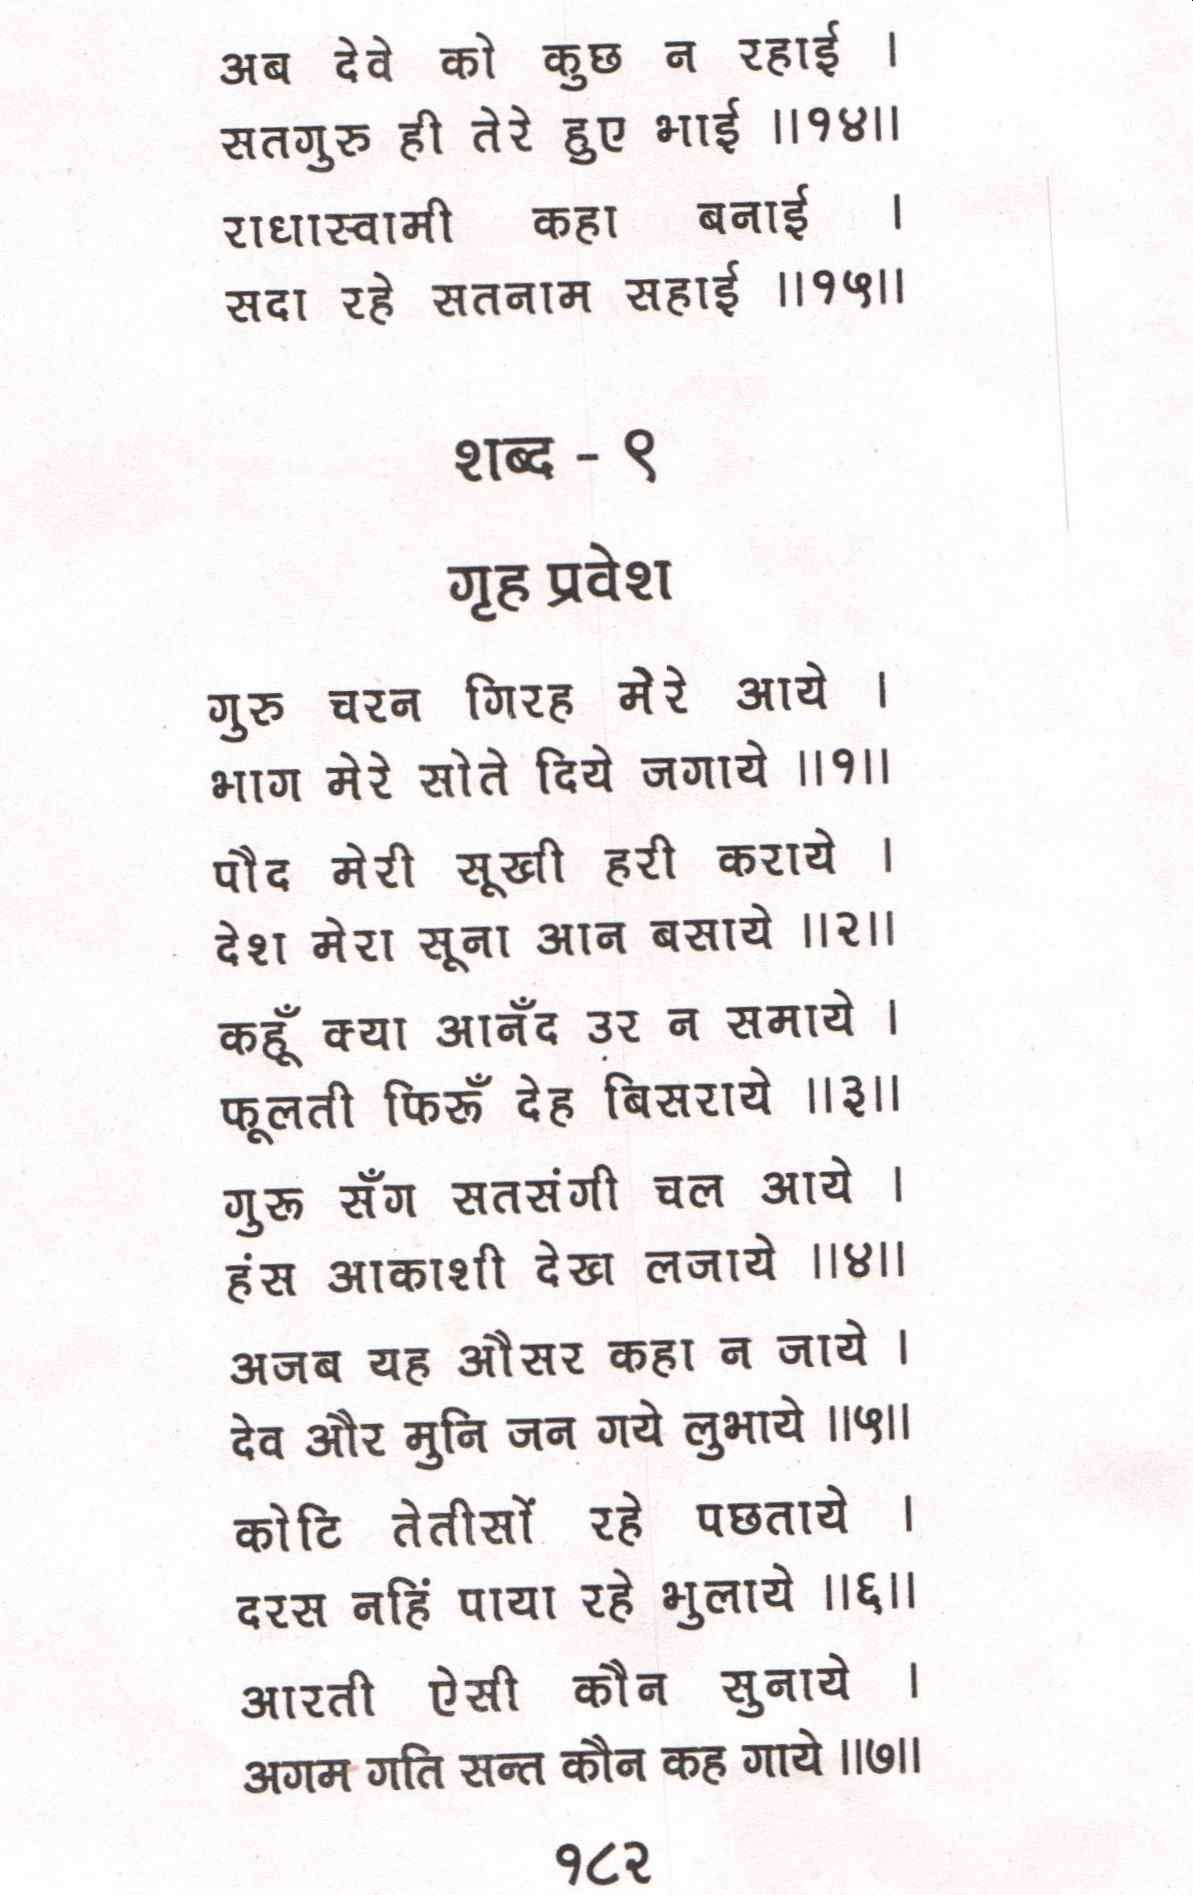 अब देवे को कुछ न रहाई ।
सतगुरु ही तेरे हुए भाई ॥१४॥
राधास्वामी कहा बनाई ।
सदा रहे सतनाम सहाई ॥१५॥
शब्द - ९
गृह प्रवेश
गुरु चरन गिरह मेरे आये ।
भाग मेरे सोते दिये जगाये ॥१॥
पौद मेरी सूखी हरी कराये ।
देश मेरा सूना आन बसाये ॥२॥
कहूँ क्या आनँद उर न समाये ।
फूलती फिरूँ देह बिसराये ॥३॥
गुरू सँग सतसंगी चल आये ।
हंस आकाशी देख लजाये ॥४॥
अजब यह औसर कहा न जाये ।
देव और मुनि जन गये लुभाये ॥५॥
कोटि तेतीसों रहे पछताये ।
दरस नहिं पाया रहे भुलाये ॥६॥
आरती ऐसी कौन सुनाये ।
अगम गति सन्त कौन कह गाये ॥७॥
१८२